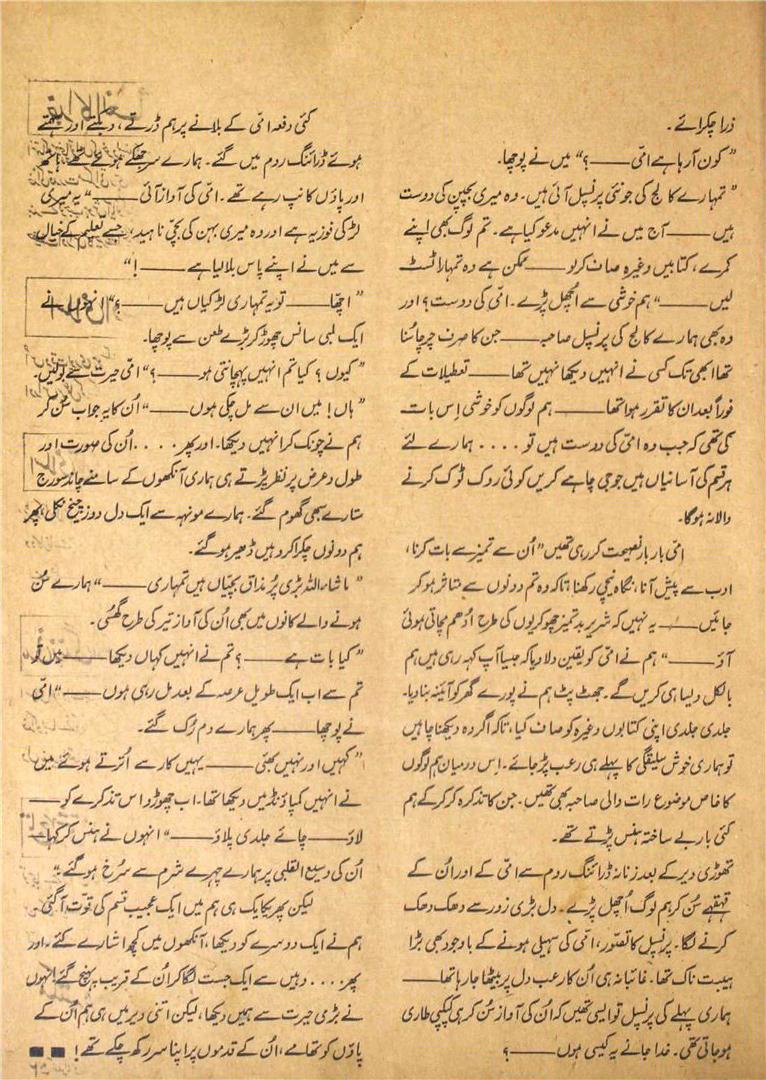 ذرا چکرائے۔
" کون آرہا ہے امّی ——؟" میں نے پوچھا۔
" تمہارے کالج کی جو نئی پرنسپل آئی ہیں۔ وہ میری بچپن کی دوست
ہیں —— آج میں نے انہیں مدعو کیا ہے۔ تم لوگ بھی اپنے
کمرے، کتابیں وغیرہ صاف کرلو —— ممکن ہے وہ تمہارا ٹسٹ
لیں ——" ہم خوشی سے اُچھل پڑے۔ امّی کی دوست؟ اور
وہ بھی ہمارے کالج کی پرنسپل صاحبہ —— جن کا صرف چرچا سُنا
تھا ابھی تک کسی نے انہیں دیکھا نہیں تھا —— تعطیلات کے
فوراً بعد ان کا تقرر ہوا تھا —— ہم لوگوں کو خوشی اِس بات
کی تھی کہ جب وہ امّی کی دوست ہیں تو .... ہمارے لئے
ہر قسم کی آسانیاں ہیں جو جی چاہے کریں کوئی روک ٹوک کرنے
والا نہ ہوگا۔
امّی بار بار نصیحت کر رہی تھیں " اُن سے تمیز سے بات کرنا،
ادب سے پیش آنا، نگاہ نیچی رکھنا تاکہ وہ تم دونوں سے متاثر ہو کر
جائیں —— یہ نہیں کہ شریر بدتمیز چھوکریوں کی طرح اُدھم مچاتی ہوئی
آؤ ——" ہم نے امّی کو یقین دلا دیا کہ جیسا آپ کہہ رہی ہیں ہم
بالکل ویسا ہی کریں گے۔ جھٹ پٹ ہم نے پورے گھر کو آئینہ بنا دیا۔
جلدی جلدی اپنی کتابوں وغیرہ کو صاف کیا، تاکہ اگر وہ دیکھنا چاہیں
تو ہماری خوش سلیقگی کا پہلے ہی رعب پڑ جائے۔ اِس درمیان ہم لوگوں
کا خاص موضوع رات والی صاحبہ بھی تھیں۔ جن کا تذکرہ کر کرکے ہم
کئی بار بے ساختہ ہنس پڑتے تھے۔
تھوڑی دیر کے بعد زنانہ ڈرائنگ روم سے امّی کے اور اُن کے
قہقہے سُن کر ہم لوگ اُچھل پڑے۔ دل بڑی زور سے دھک دھک
کرنے لگا۔ پرنسپل کا تصّور، امّی کی سہیلی ہونے کے باوجود بھی بڑا
ہیبت ناک تھا۔ غائبانہ ہی اُن کا رعب دل پر بیٹھا جا رہا تھا ——
ہماری پہلے کی پرنسپل تو ایسی تھیں کہ اُن کی آواز سُن کر ہی کپکپی طاری
ہو جاتی تھی۔ خدا جانے یہ کیسی ہوں ——؟
کئی دفعہ امّی کے بلانے پر ہم ڈرتے، دبلتے اور ہنستے
ہوئے ڈرائنگ روم میں گئے۔ ہمارے سر جھکے ہوئے تھے ہاتھ
اور پاؤں کانپ رہے تھے۔ امّی کی آواز آئی —— " یہ میری
لڑکی فوزیہ ہے اور وہ میری بہن کی بچّی ناہید، جسے تعلیم کے خیال
سے میں نے اپنے پاس بلا لیا ہے ——!"
" اچھّا —— تو یہ تمہاری لڑکیاں ہیں ——؟" انہوں نے
ایک لمبی سانس چھوڑ کر بڑے طعن سے پوچھا۔
" کیوں؟ کیا تم انہیں پہچانتی ہو ——؟" امّی حیرت سے بولیں۔
" ہاں! میں ان سے مل چکی ہوں ——" اُن کا یہ جواب سُن کر
ہم نے چونک کر انہیں دیکھا۔ اور پھر .... اُن کی صورت اور
طول و عرض پر نظر پڑتے ہی ہماری آنکھوں کے سامنے چاند سورج
ستارے سبھی گھوم گئے۔ ہمارے مونہہ سے ایک دل دوز چیخ نکلی، پھر
ہم دونوں چکرا کر وہیں ڈھیر ہوگئے۔
" ماشاءاللہ بڑی پُر مذاق بچّیاں ہیں تمہاری ——" ہمارے سُن
ہونے والے کانوں میں بھی اُن کی آواز تیر کی طرح گھُسی۔
" کیا بات ہے ——؟ تم نے انہیں کہاں دیکھا —— میں تو
تم سے اب ایک طویل عرصہ کے بعد مل رہی ہوں ——" امّی
نے پوچھا —— پھر ہمارے دم رُک گئے۔
" کہیں اور نہیں بھئی —— یہیں کار سے اُترتے ہوئے میں
نے انہیں کمپاؤنڈ میں دیکھا تھا۔ اب چھوڑو اس تذکرے کو ——
لاؤ —— چائے جلدی پلاؤ ——" انہوں نے ہنس کر کہا ——
اُن کی وسیع القلبی پر ہمارے چہرے شرم سے سُرخ ہوگئے۔
لیکن پھر یکایک ہی ہم میں ایک عجیب قسم کی قوت آگئی
ہم نے ایک دوسرے کو دیکھا، آنکھوں میں کچھ اشارے کئے۔ اور
پھر .... وہیں سے ایک جست لگا کر اُن کے قریب پہنچ گئے انہوں
نے بڑی حیرت سے ہمیں دیکھا، لیکن اتنی دیر میں ہی ہم اُن کے
پاؤں کو تھامے، اُن کے قدموں پر اپنا سر رکھ چکے تھے!